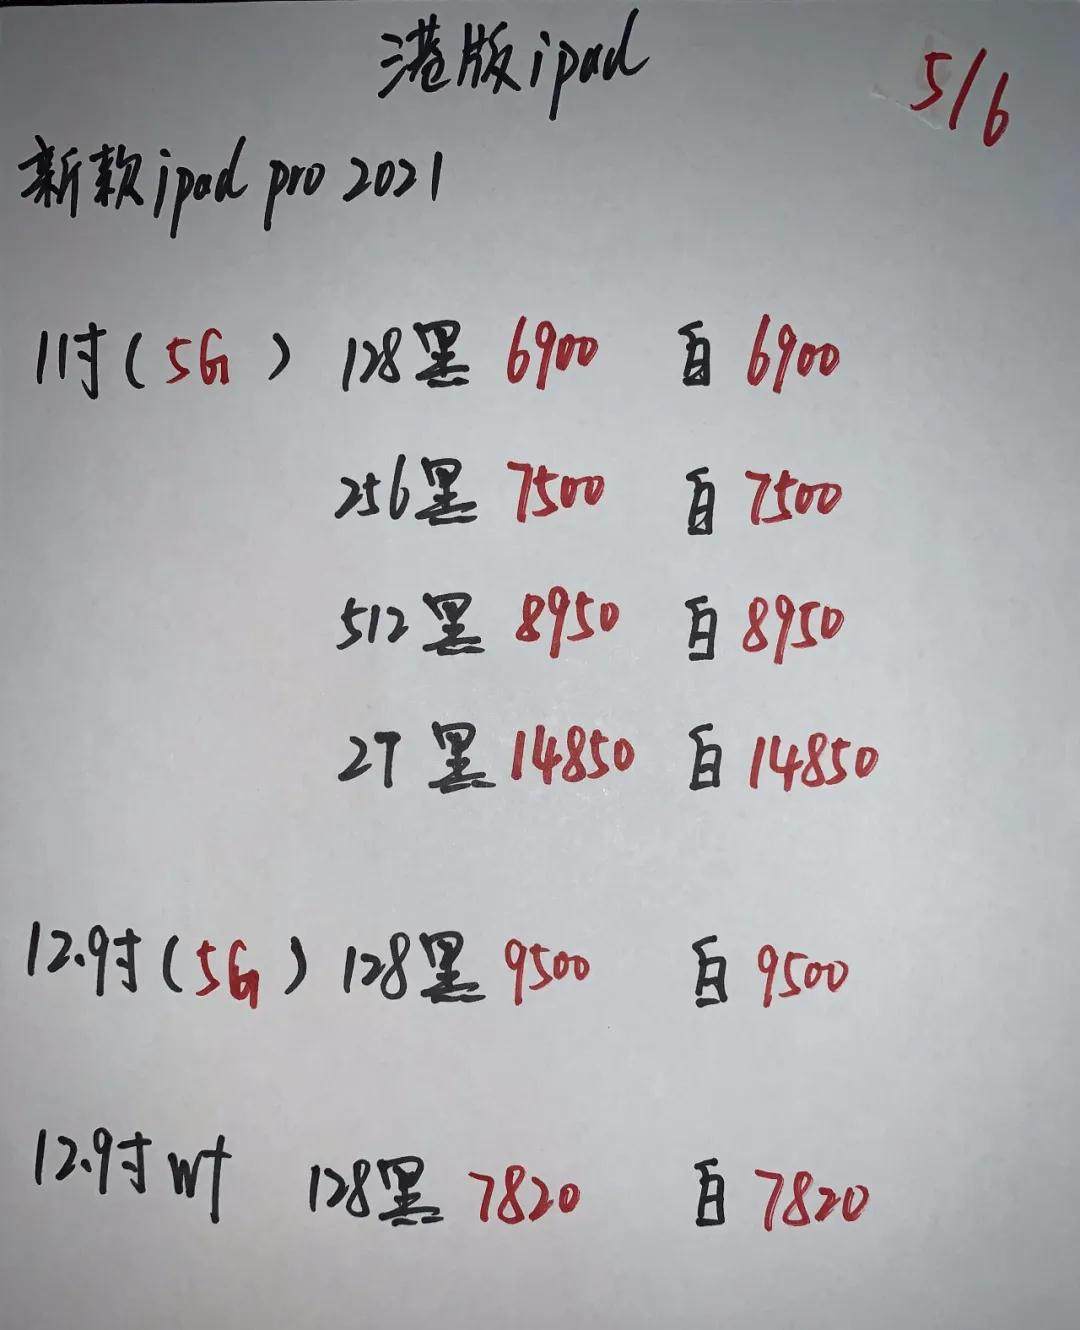 港版ipad
5/6
新款ipad pro 2021
11寸(5G) 128黑 6900 白 6900
256黑 7500 白 7500
512黑 8950 白 8950
2T 黑 14850 白 14850
12.9寸(5G) 128黑 9500 白 9500
12.9寸 wf 128黑 7820 白 7820